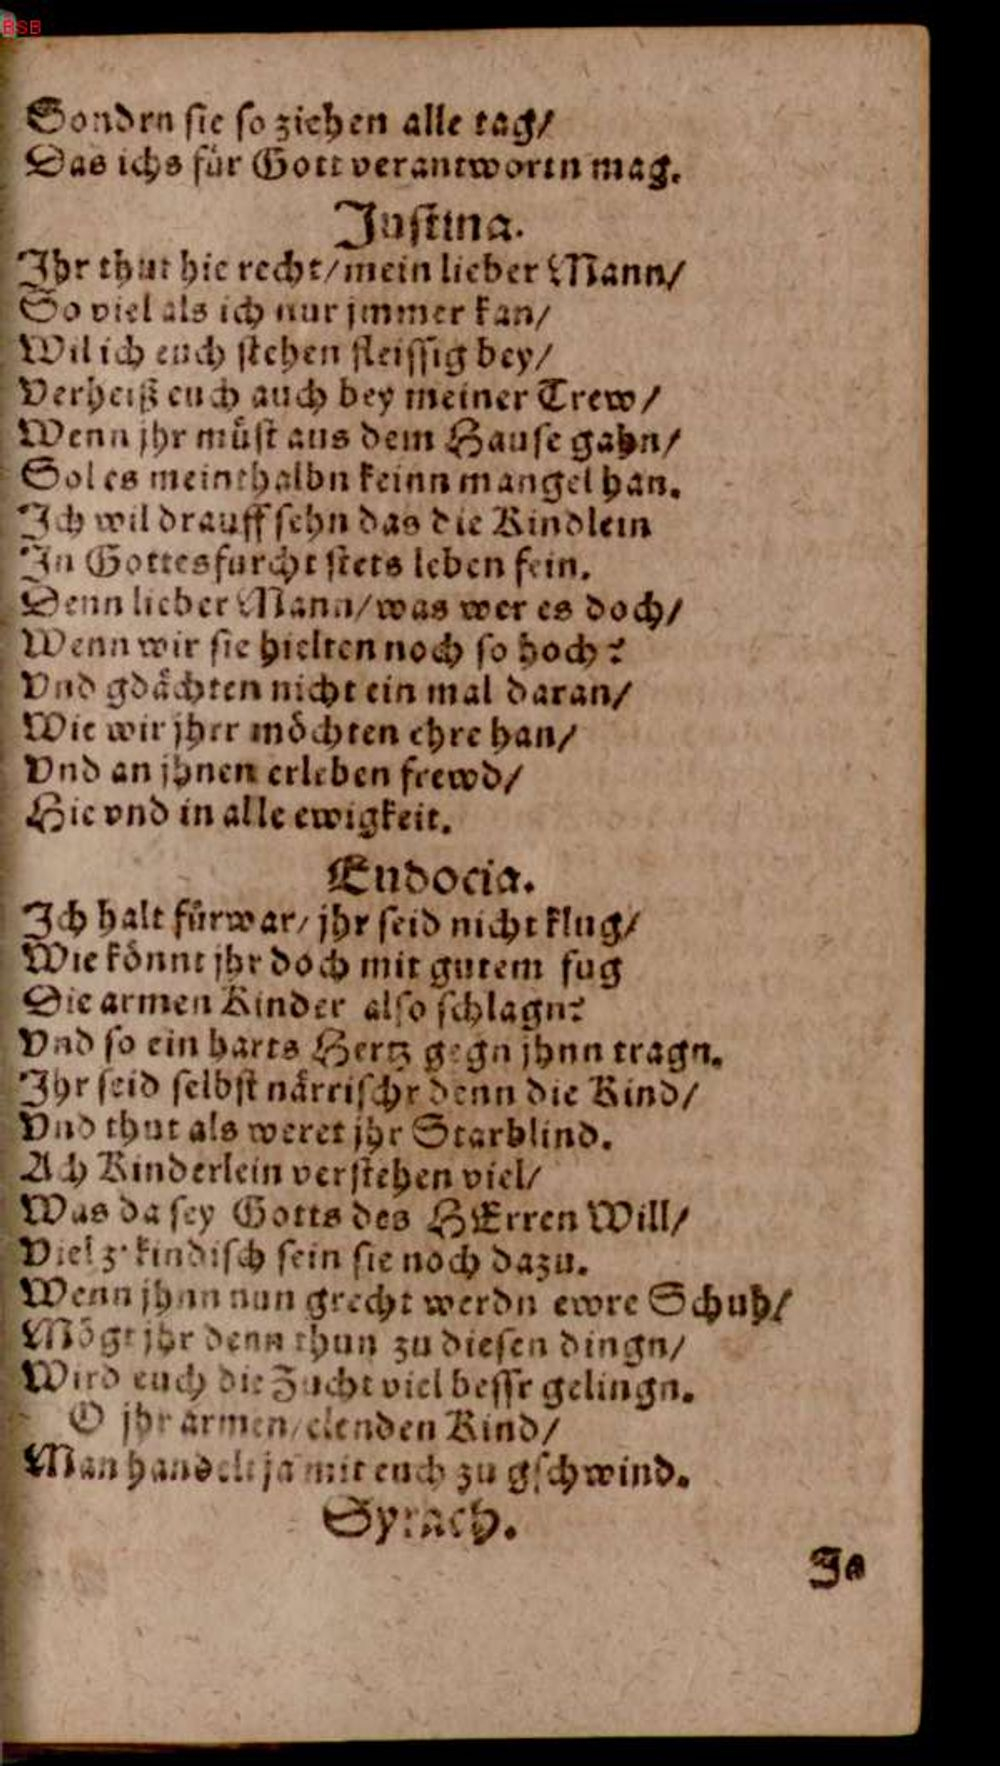 BSB
Sondrn sie so ziehen alle tag/
Das ichs für Gott verantwortn mag.
Justina.
Ihr thut hie recht/mein lieber Mann/
So viel als ich nur jmmer kan/
Wil ich euch stehen fleissig bey/
Verheiß euch auch bey meiner Trew/
Wenn jhr müst aus dem Hause gahn/
Sol es meinthalbn keinn mangel han.
Ich wil drauff sehn das die Kindlein
In Gottesfurcht stets leben fein.
Denn lieber Mann/was wer es doch/
Wenn wir sie hielten noch so hoch?
Vnd gdächten nicht ein mal daran/
Wie wir jhrr möchten ehre han/
Vnd an jhnen erleben frewd/
Hie vnd in alle ewigkeit.
Eudocia.
Ich halt fürwar/ jhr seid nicht klug/
Wie könnt jhr doch mit gutem fug
Die armen Kinder also schlagn?
Vnd so ein harts Hertz gegn jhnn tragn.
Ihr seid selbst närrischr denn die Kind/
Vnd thut als weret jhr Starblind.
Ach Kinderlein verstehen viel/
Was da sey Gotts des HErren Will/
Viel z' kindisch sein sie noch dazu.
Wenn jhnn nun grecht werdn ewre Schuh/
Mögt jhr denn thun zu diesen dingn/
Wird euch die Zucht viel bessr gelingn.
O jhr armen/elenden Kind/
Man handelt ja mit euch zu gschwind.
Syrach.
Ja